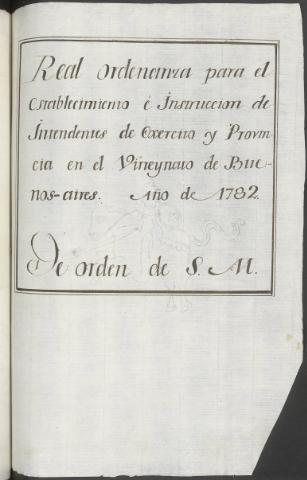 Real ordenanza para el
establecimiento é Instruccion de
Intendentes de Exercito y Provin-
cia en el Virreynato de Bue-
nos-aires. Año de 1782.
De orden de S. M.